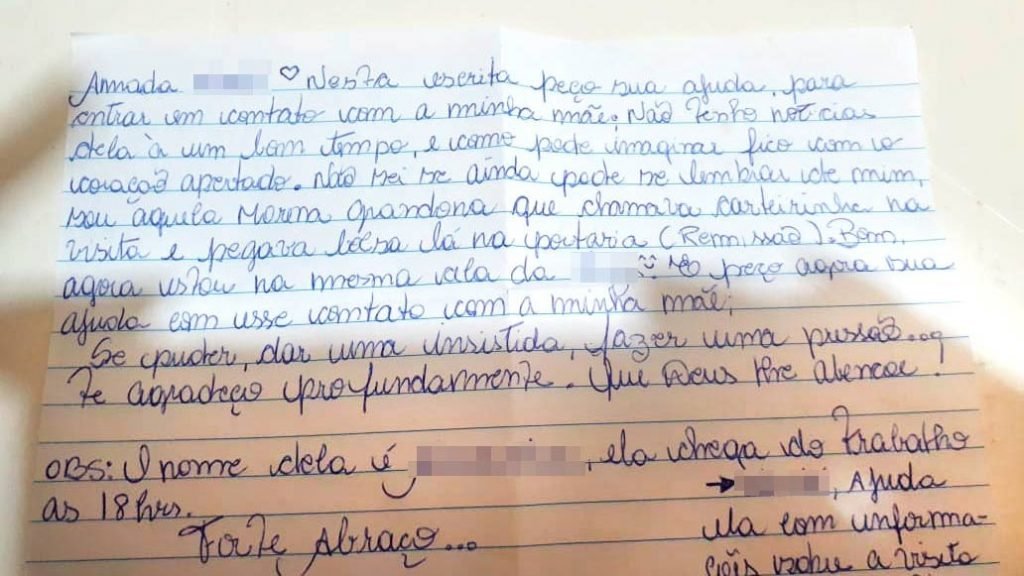 Amada ♡ Nesta escrita peço sua ajuda, para
entrar em contato com a minha mãe. Não tenho notícias
dela à um bom tempo, e como pode imaginar fico com o
coração apertado. Não sei se ainda pode se lembrar de mim,
sou aquela Morena grandona que chamava carteirinha na
visita e pegava bolsa lá na portaria (Remissão). Bem,
agora estou na mesma cela da peço agora sua
ajuda com esse contato com a minha mãe;
Se puder, dar uma insistida, fazer uma pressão...
Te agradeço profundamente. Que Deus lhe abençoe!
OBS: O nome dela é , ela chega do trabalho
as 18 hrs.
Forte Abraço...
→ , Ajuda
ela com informa-
ções sobre a visita